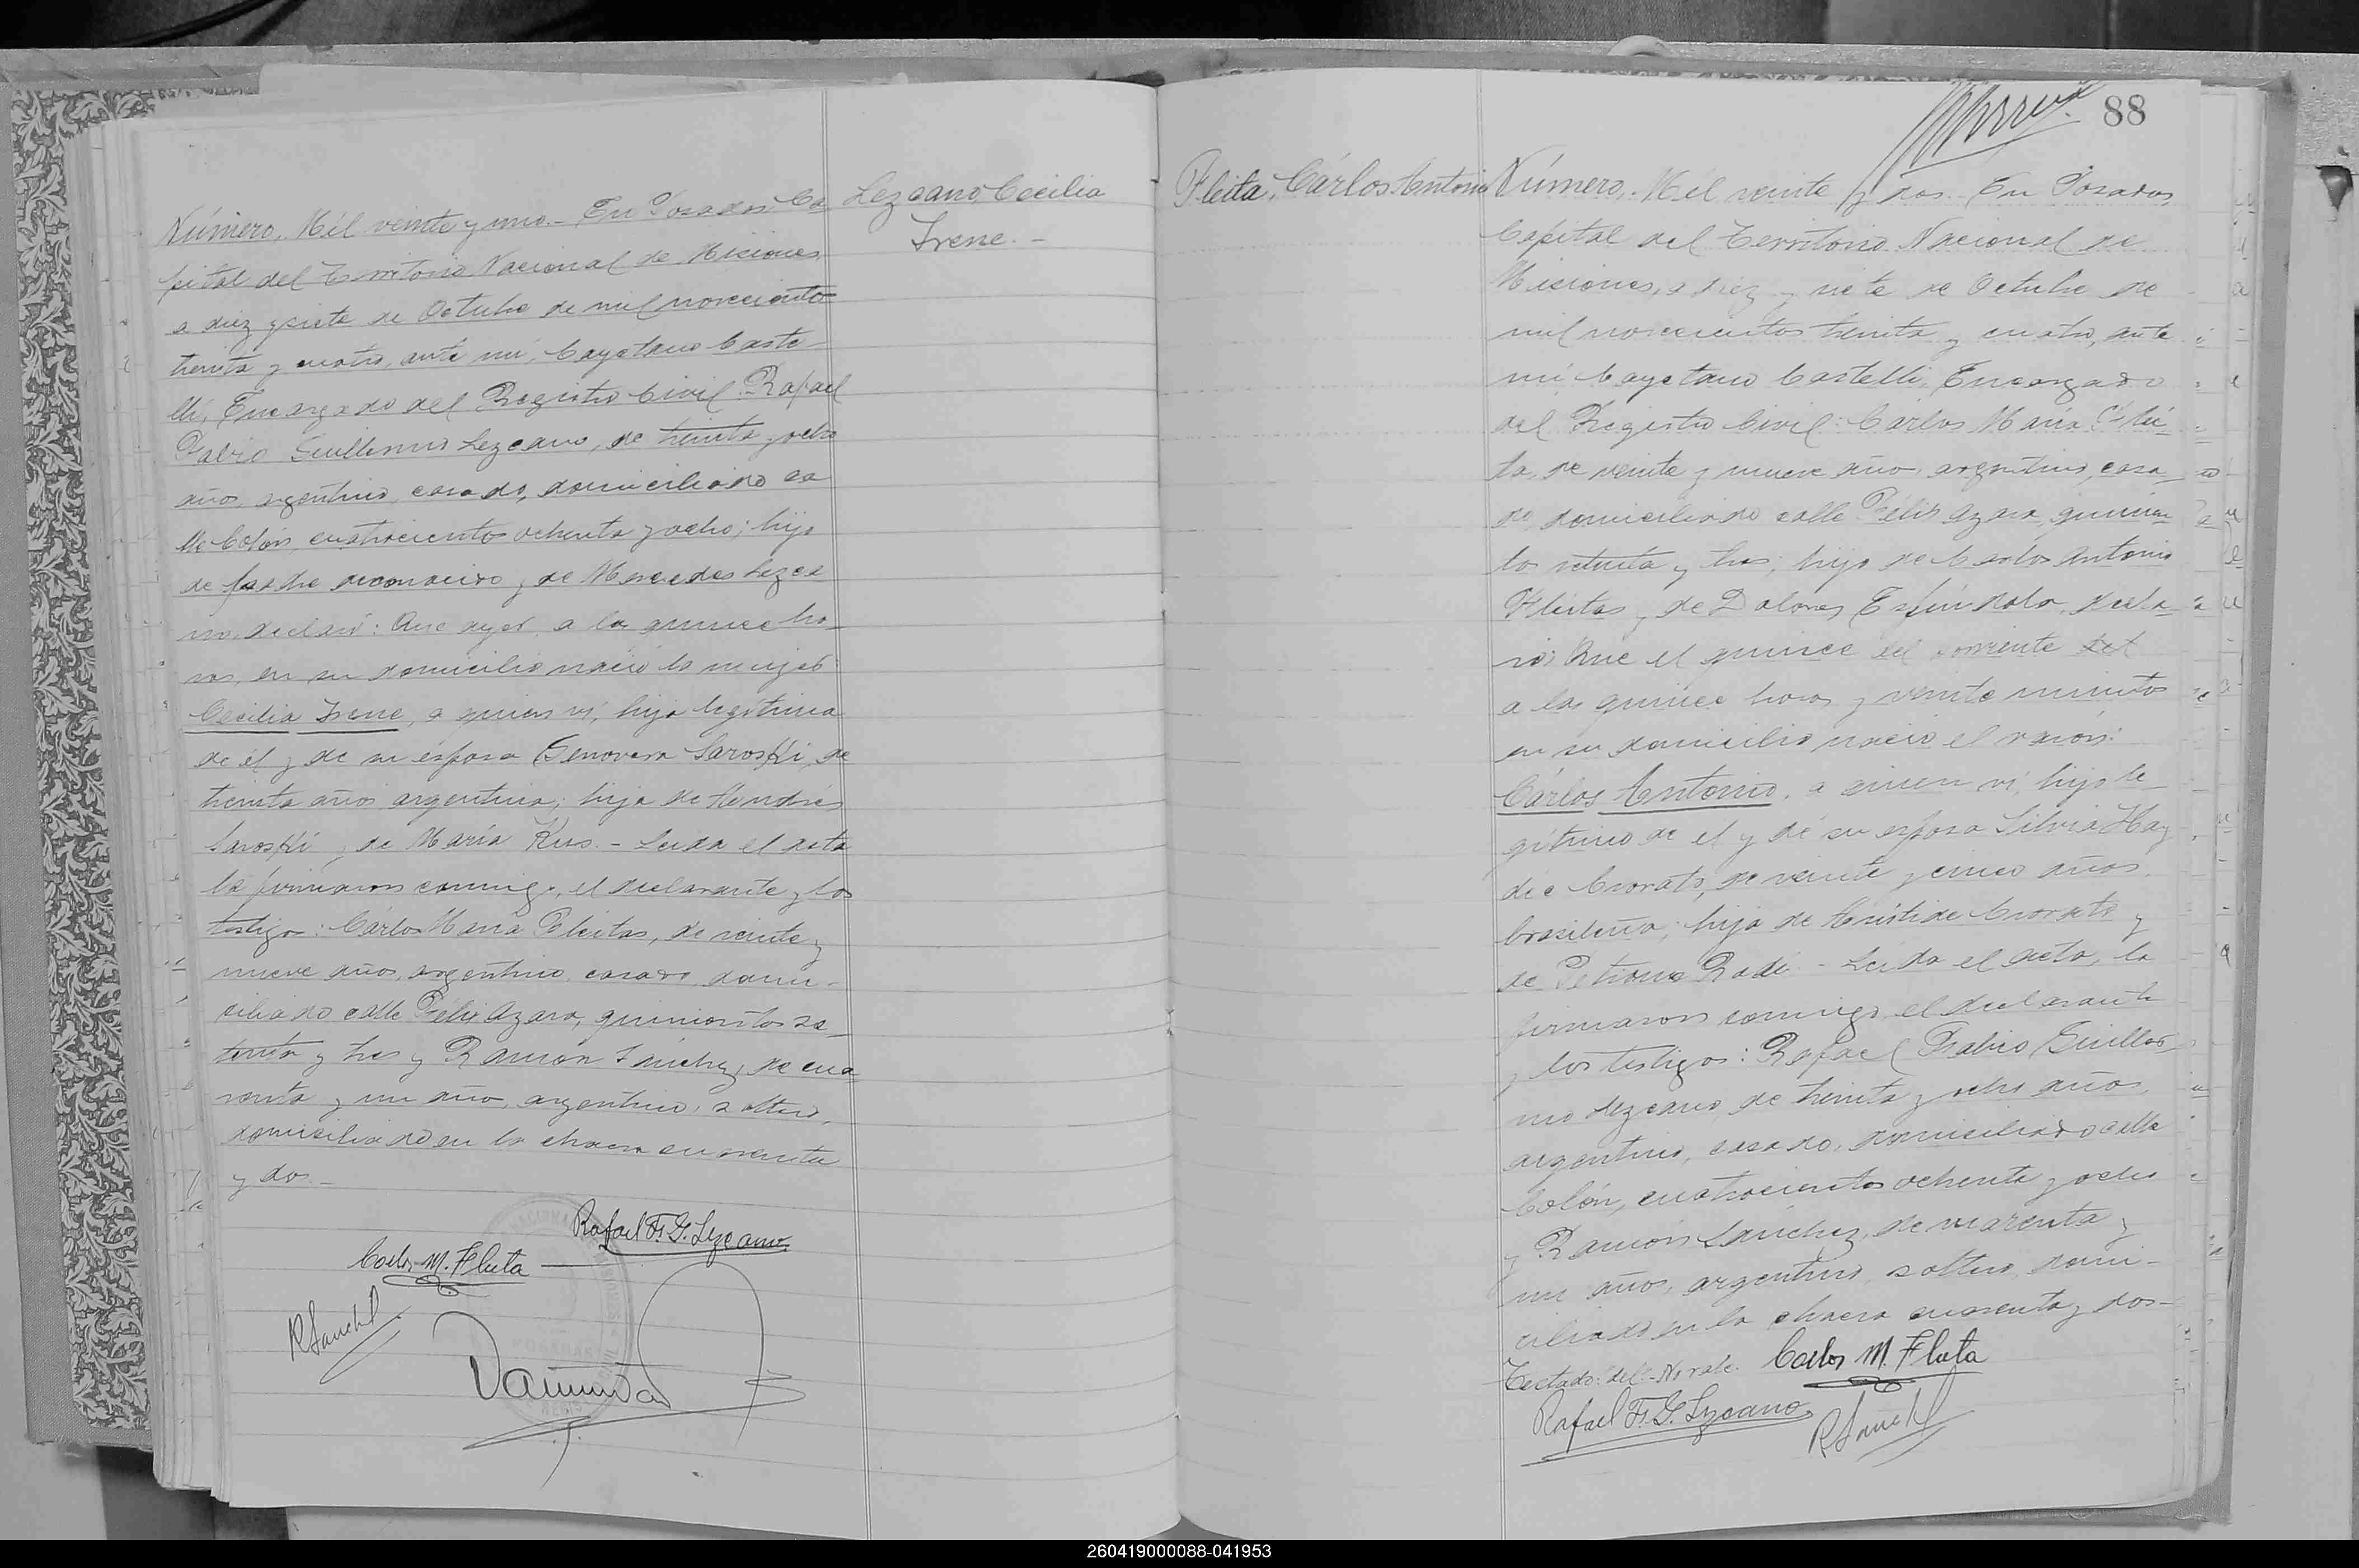 Lezcano, Cecilia
Irene.-
Número, Mil veinte y uno.- En Posadas Ca
pital del Territorio Nacional de Misiones
a diez y siete de Octubre de mil novecientos
treinta y cuatro, ante mi, Cayetano Caste-
lli, Encargado del Registro Civil: Rafael
Fabio Guillermo Lezcano, de treinta y ocho
años, argentino, casado, domiciliado ca
lle Colón, cuatrocientos ochenta y ocho; hijo
de padre desconocido y de Mercedes Lezca
no, declaró: Que ayer, a las quince ho-
ras, en su domicilio nació la mujer:
Cecilia Irene, a quien ví, hija legítima
de él y de su esposa Genoveva Saroski, de
treinta años argentina; hija de Andrés
Saroski y de María Kus.- Leida el acta
la firmaron conmigo, el declarante y los
testigos: Cárlos María Fleitas, de veinte y
nueve años, argentino, casado, domi-
ciliado calle Félix Azara, quinientos se-
tenta y tres y Ramón Sánchez, de cua
renta y un año, argentino, soltero,
domiciliado en la chacra cuarenta
y dos.-
Rafael F. G. Lezcano
Carlos M. Fleita
R Sanchez
88
Fleita, Cárlos Antonio
Número, Mil veinte y dos.- En Posadas,
Capital del Territorio Nacional de
Misiones, a diez y siete de Octubre de
mil novecientos treinta y cuatro, ante
mi Cayetano Castelli, Encargado
del Registro Civil: Carlos María Flei-
ta, de veinte y nueve años, argentino, casa-
do, domiciliado calle Félix Azara, quinien
tos setenta y tres; hijo de Carlos Antonio
Fleitas y de Dolores Espíndola, decla-
ró: Que el quince del corriente del
a las quince horas y veinte minutos
en su domicilio nació el varón:
Cárlos Antonio, a quien ví, hijo le-
gítimo de él y de su esposa Silvia Hay
dée, de veinte y cinco años,
brasileña; hija de Arístide y
de Petrona.- Leida el acta, la
firmaron conmigo, el declarante
y los testigos: Rafael Fabio Guiller-
mo Lezcano, de treinta y ocho años,
argentino, casado, domiciliado calle
Colón, cuatrocientos ochenta y ocho
y Ramón Sánchez, de cuarenta y
un años, argentino, soltero, domi-
ciliado en la chacra cuarenta y dos-
Testado: del.- No vale.
Carlos M. Fleita
Rafael F. G. Lezcano
R Sanchez
260419000088-041953